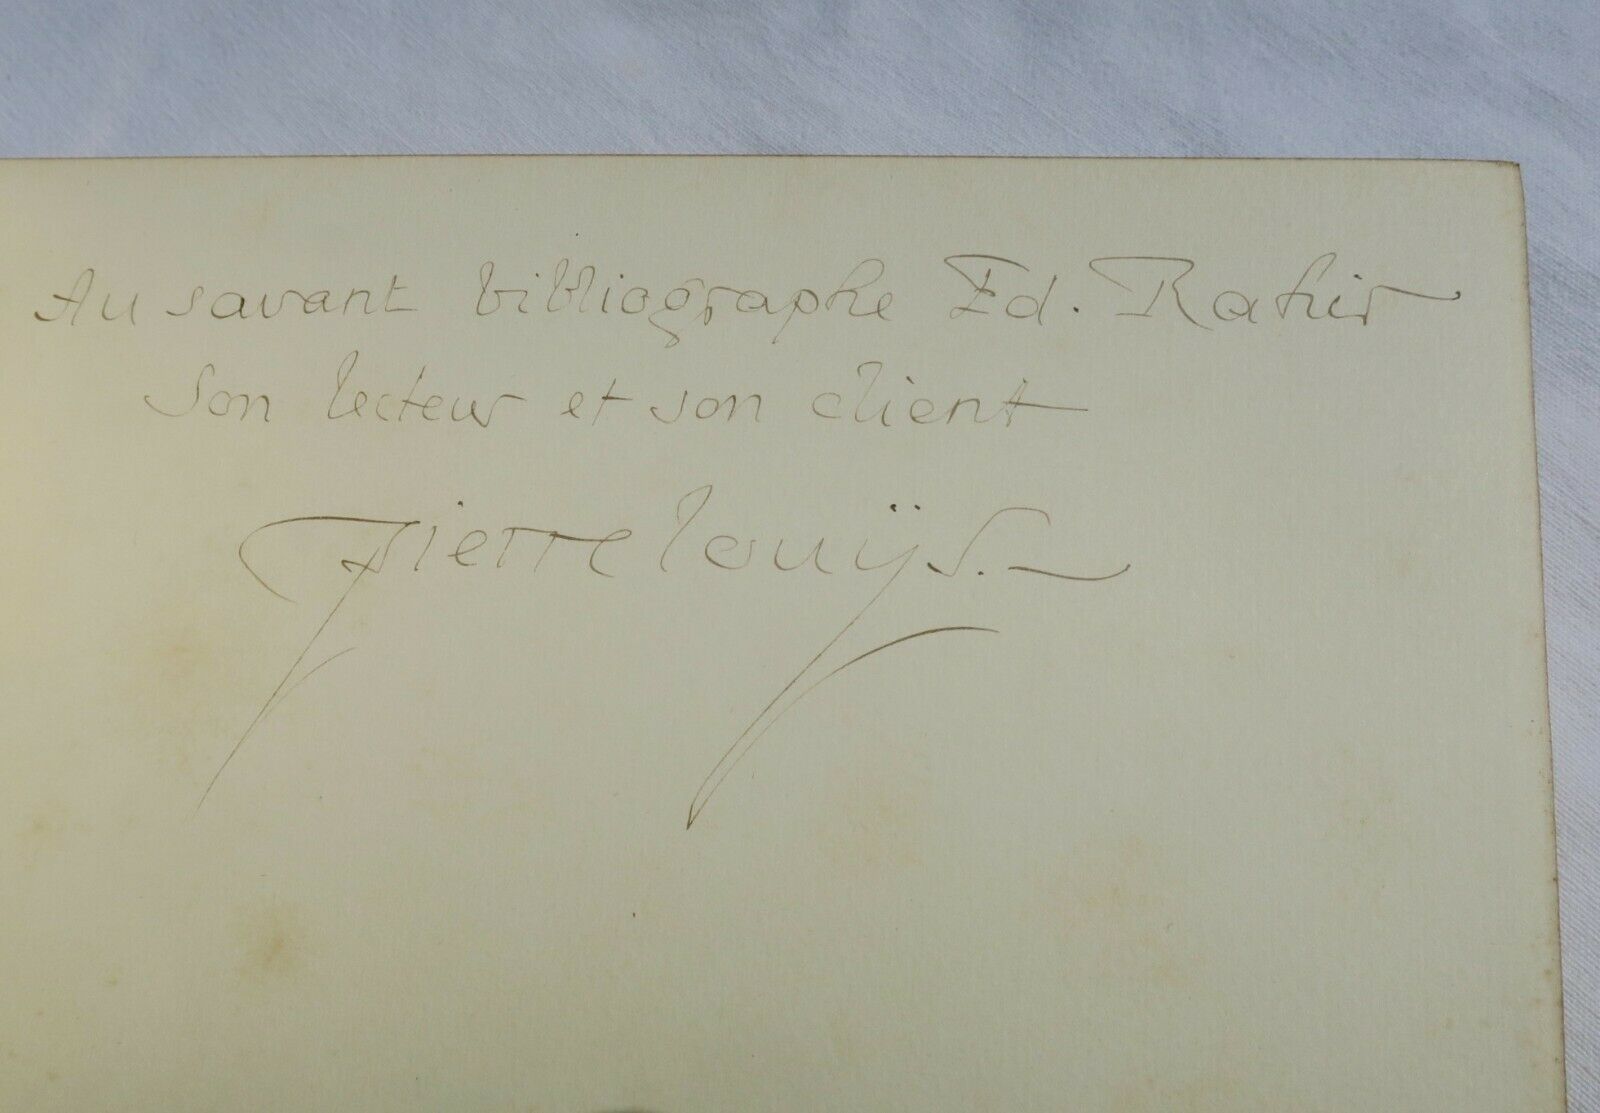 Au savant bibliographe Ed. Rahir
Son lecteur et son client
Pierre Louÿs.